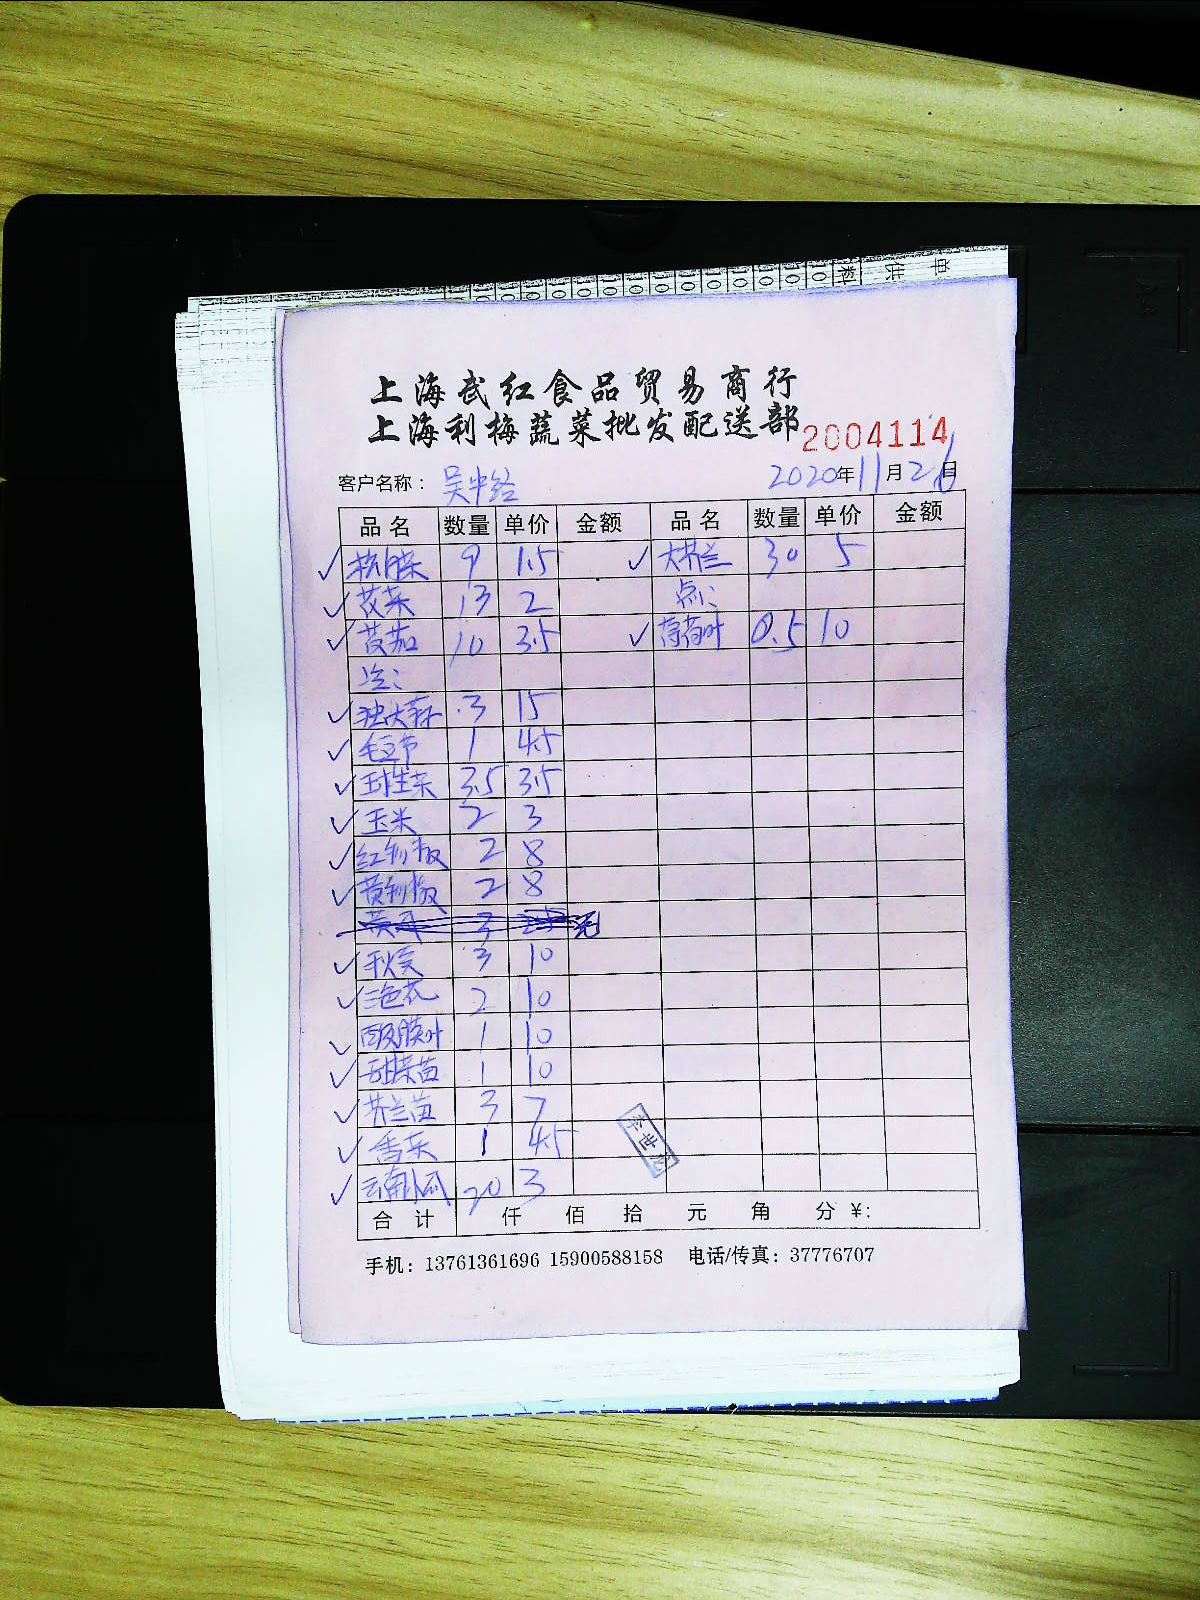 上海武红食品贸易商行
上海利梅蔬菜批发配送部
2004114
客户名称： 吴中路 2020年11月26日
品名 数量 单价 金额 品名 数量 单价 金额
9 1.5 大芥兰 30 5
茭菜 13 2 点：
10 3.5 薄荷叶 0.5 10
冷：
独大蒜 3 15
毛豆节 1 4.5
球生菜 3.5 3.5
玉米 2 3
红利椒 2 8
黄利椒 2 8
黄瓜 3 无
秋葵 3 10
三色花 2 10
1 10
甜菜苗 1 10
芥兰苗 3 7
香菜 1 4.5
云南小瓜 20 3
李世
合计 仟 佰 拾 元 角 分 ¥：
手机：13761361696 15900588158 电话/传真：37776707